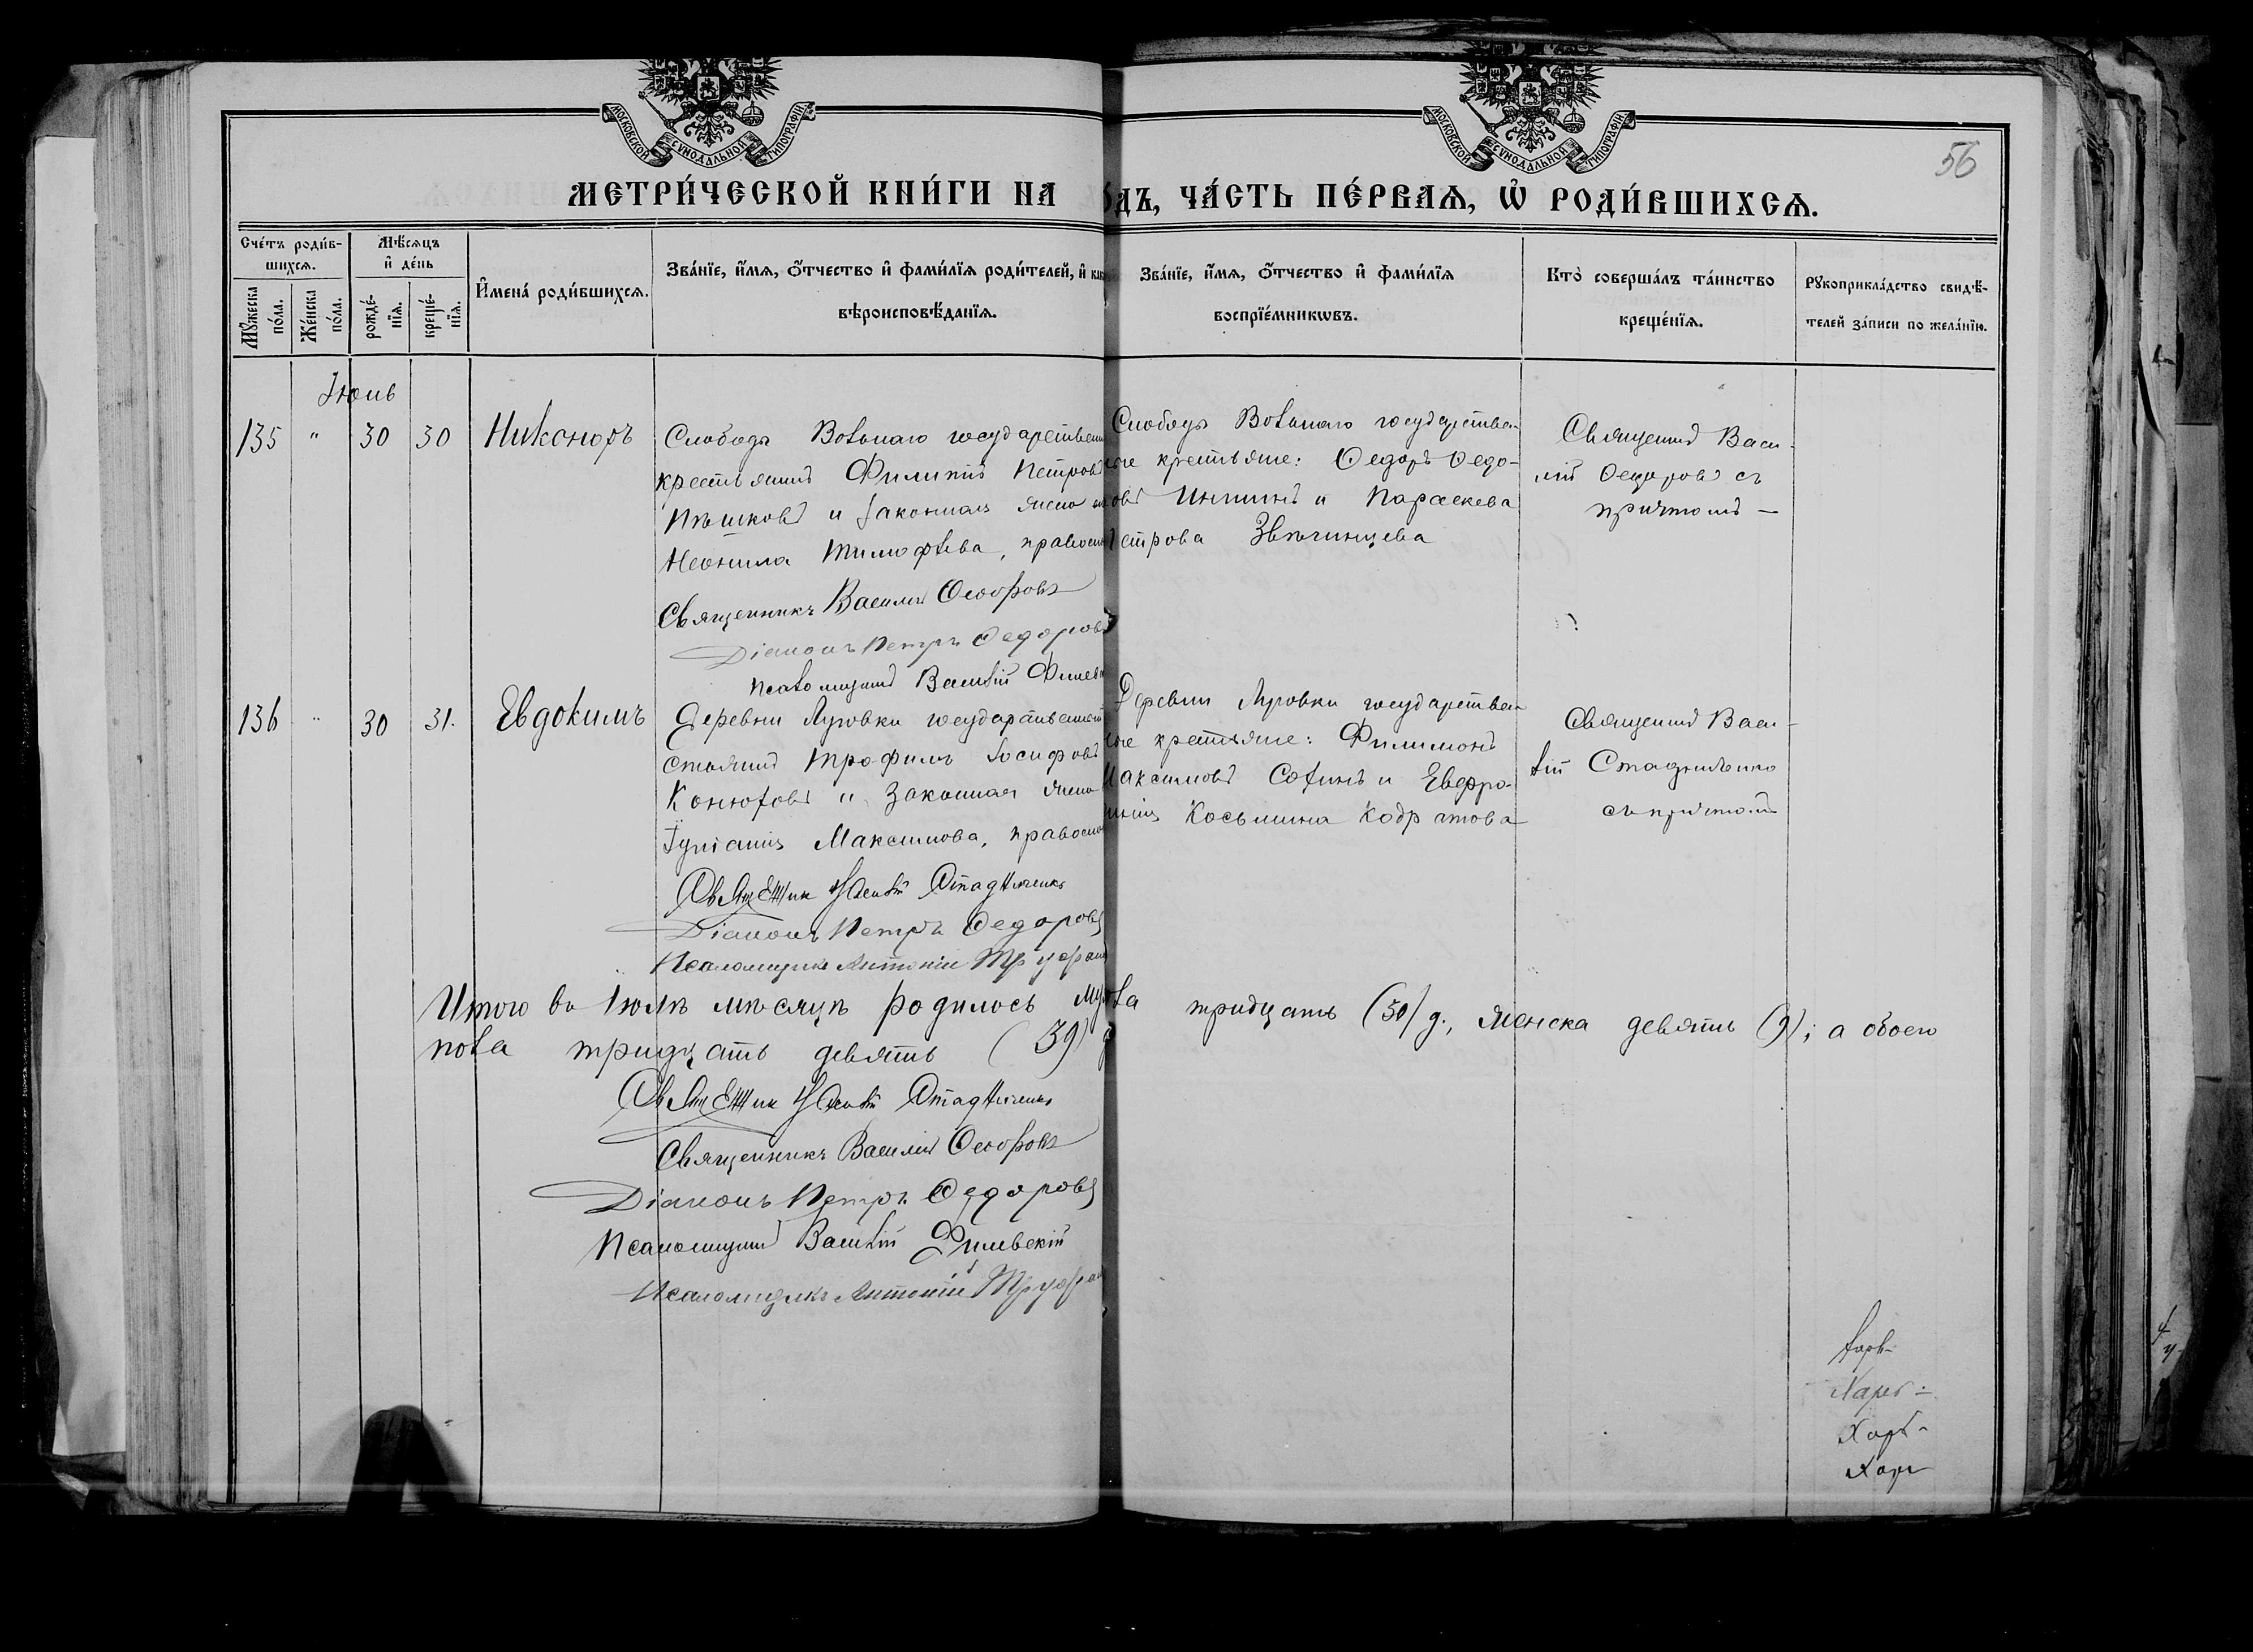 МОСКОВСКОЙ СѴНОДАЛЬНОЙ ТИПОГРАФІИ
МОСКОВСКОЙ СѴНОДАЛЬНОЙ ТИПОГРАФІИ
56
МЕТРИ́ЧЕСКОЙ КНИ́ГИ НА
ОДЪ, ЧА́СТЬ ПЕ́РВАѦ, Ѡ҆ РОДИ́ВШИХСѦ.
Сче́тъ роди́в-
шихсѧ.
Мꙋ́жеска
по́ла.
Же́нска
по́ла.
Мѣ́сѧцъ
и҆ де́нь
рожде́-
нїѧ.
креще́-
нїѧ.
И҆мена̀ роди́вшихсѧ.
Зва́нїе, и҆́мѧ, ѻ҆́тчество и҆ фами́лїѧ роди́телей, и҆
вѣроисповѣ́данїѧ.
Зва́нїе, и҆́мѧ, ѻ҆́тчество и҆ фами́лїѧ
воспрїе́мникѡвъ.
Кто̀ соверша́лъ та́инство
креще́нїѧ.
Рꙋкоприкла́дство свидѣ́-
телей за́писи по жела́нїю.
Іюль
135 " 30 30 Никоноръ
Слободы Вольнаго государствен
крестьянинъ Филиппъ Петровъ
Пѣшковъ и законная жена
Неонила Тимофѣева, правосл
Священникъ Василій Ѳеодоровъ
Діаконъ Петръ Ѳедоровъ
Псаломщикъ Василій Филев
Слободы Вольнаго государствен-
ные крестьяне: Ѳедоръ Ѳедо-
овъ Инпинъ и Параскева
Петрова Звягинцева
Священникъ Васи-
лій Ѳедоровъ съ
причтомъ —
136 " 30 31. Евдокимъ
Деревни Луговки государственной
стьянинъ Трофимъ Іосифовъ
Конюховъ и законная жена
Іуліанія Максимова, правосл
Священник Василій Стадниченко
Діаконъ Петръ Ѳедоровъ
Псаломщикъ Антоній
Деревни Луговки государствен
ные крестьяне: Филимонъ
Максимовъ Солинъ и Евфро-
инія Косьмина Кодратова
Священникъ Васи-
лій Стадниченко
съ причтомъ
Итого въ Іюлѣ мѣсяцѣ родилось мужска тридцать (30) д., женска девять (9); а обоего
пола тридцать девять (39) д
Священник Василій Стадниченко
Священникъ Василій Ѳеодоровъ
Діаконъ Петръ Ѳедоровъ
Псаломщикъ Василій Филевскій
Псаломщикъ Антоній